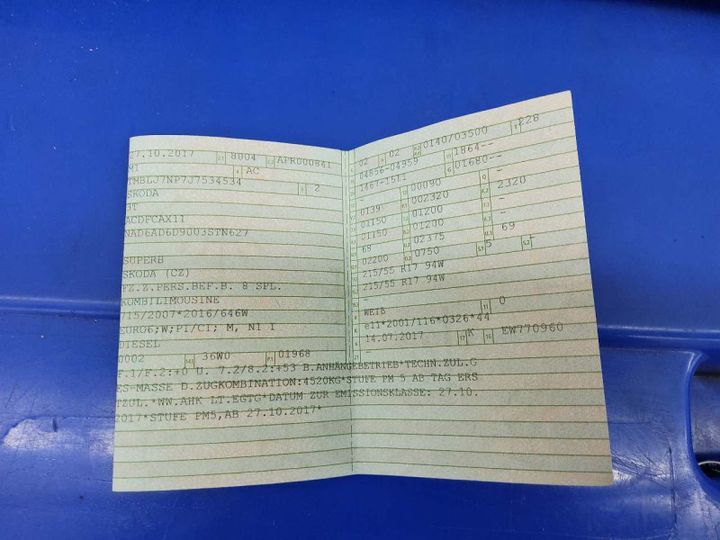 27.10.2017 8004 APR000841
M1 AC
TMBLJ7NP7J7534534 2
SKODA
3T
ACDFCAX11
NAD6AD6D9003STN627
-
SUPERB
SKODA (CZ)
FZ.Z.PERS.BEF.B. 8 SPL.
KOMBILIMOUSINE
715/2007*2016/646W
EURO6;W;PI/CI; M, N1 I
DIESEL
0002 36W0 01968
02 02 0140/03500 228
04856-04959 1864--
1467-1511- 01680--
- 00090 -
0139 002320 2320
01150 01200 -
01150 01200 -
68 02375 69
02200 0750 5 -
215/55 R17 94W
215/55 R17 94W
-
WEIß 0
e11*2001/116*0326*44
14.07.2017 K EW770960
F.1/F.2:+0 U. 7.2/8.2:+53 B.ANHÄNGEBETRIEB*TECHN.ZUL.G
ES-MASSE D.ZUGKOMBINATION:4520KG*STUFE PM 5 AB TAG ERS
TZUL.*WW.AHK LT.EGTG*DATUM ZUR EMISSIONSKLASSE: 27.10.
2017*STUFE PM5,AB 27.10.2017*